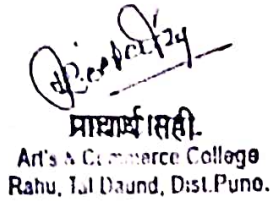 प्राचार्य सही.
Art's & Commerce College
Rahu, Tal Daund, Dist.Pune.